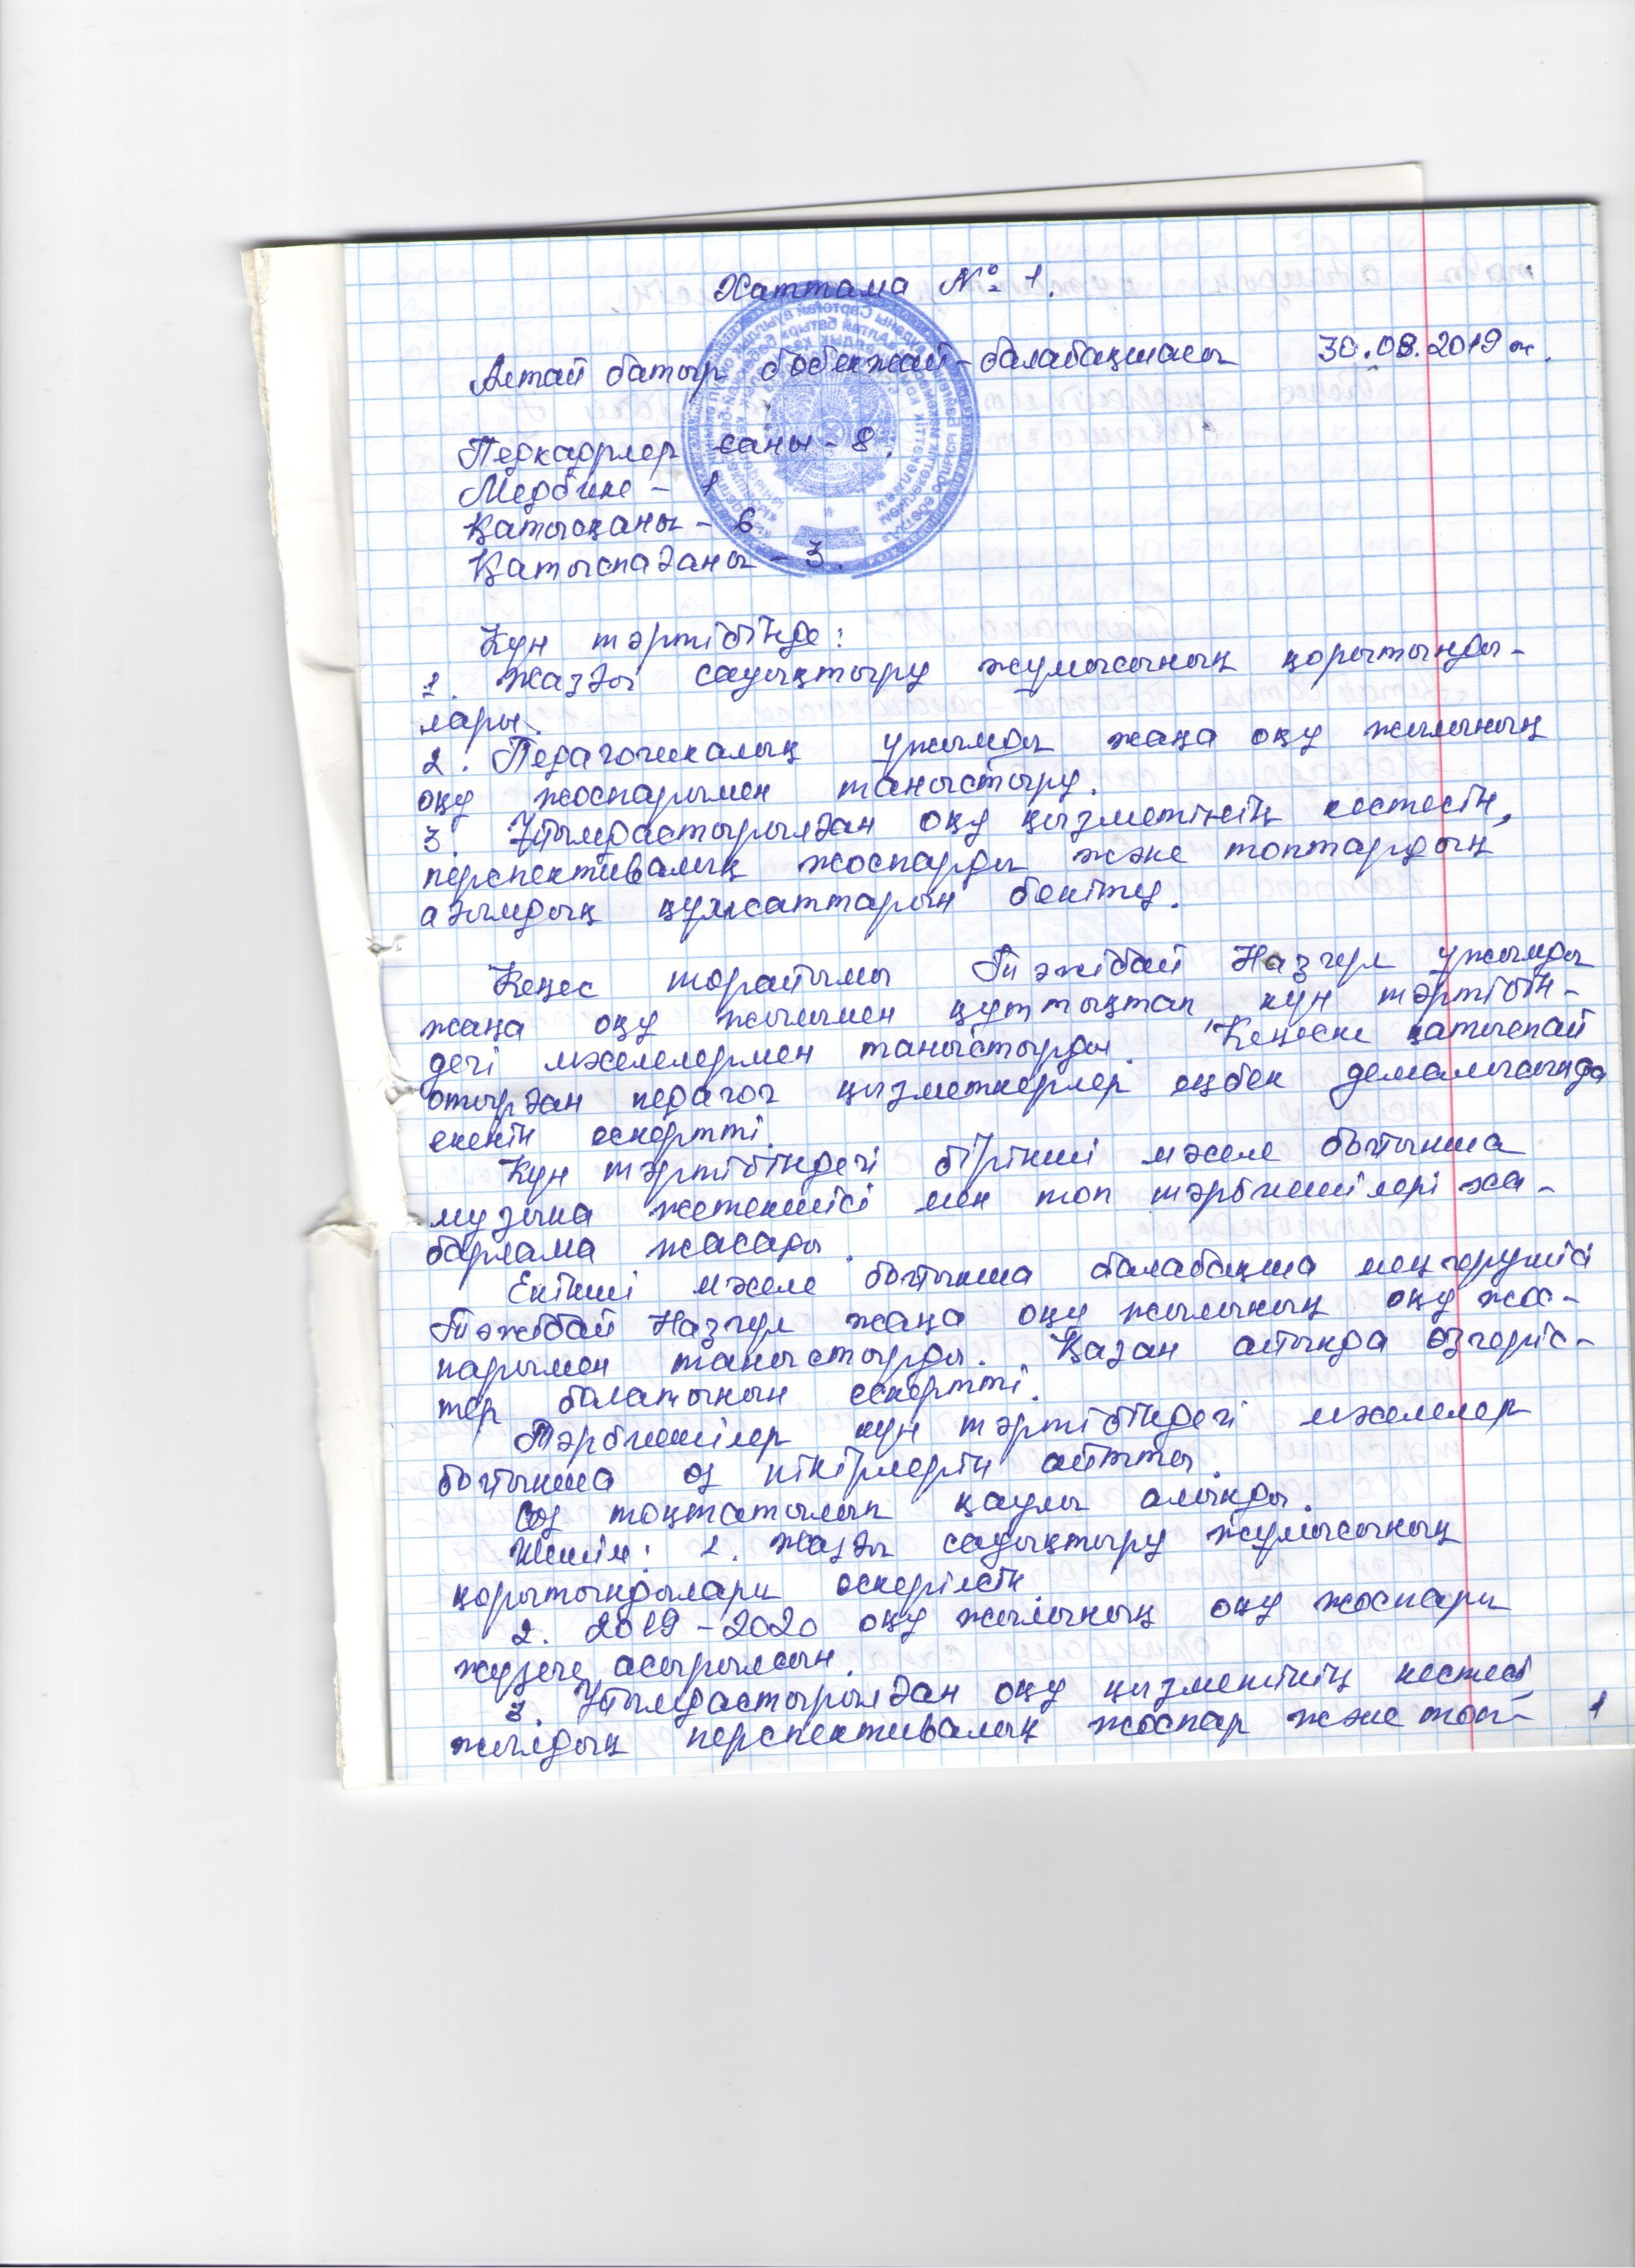 Хаттама № 1.
Алтай батыр бөбекжай-балабақшасы 30.08.2019 ж.
Педкадрлер саны - 8.
Медбике - 1
Қатысқаны - 6
Қатыспағаны - 3.
Күн тәртібінде:
1. Жазғы сауықтыру жұмысының қорытынды-
лары.
2. Педагогикалық ұжымды жаңа оқу жылының
оқу жоспарымен таныстыру.
3. Ұйымдастырылған оқу қызметінің кестесін,
перспективалық жоспарды және топтардың
ағымдық құжаттарын бекіту.
Кеңес төрайымы Тәжібай Назгүл ұжымды
жаңа оқу жылымен құттықтап күн тәртібін-
дегі мәселелермен таныстырды. Кеңеске қатыспай
отырған педагог қызметкерлер еңбек демалысында
екенін ескертті.
Күн тәртібіндегі бірінші мәселе бойынша
музыка жетекшісі мен топ тәрбиешілері ха-
барлама жасады.
Екінші мәселе бойынша балабақша меңгерушісі
Тәжібай Назгүл жаңа оқу жылының оқу жос-
парымен таныстырды. Қазан айында өзгеріс-
тер болатынын ескертті.
Тәрбиешілер күн тәртібіндегі мәселелер
бойынша өз пікірлерін айтты.
Сөз тоқтатылып қаулы алынды.
Шешім: 1. Жазғы сауықтыру жұмысының
қорытындылары ескерілсін
2. 2019-2020 оқу жылының оқу жоспары
жүзеге асырылсын.
3. Ұйымдастырылған оқу қызметінің кестесі,
жылдық перспективалық жоспар және топ- 1